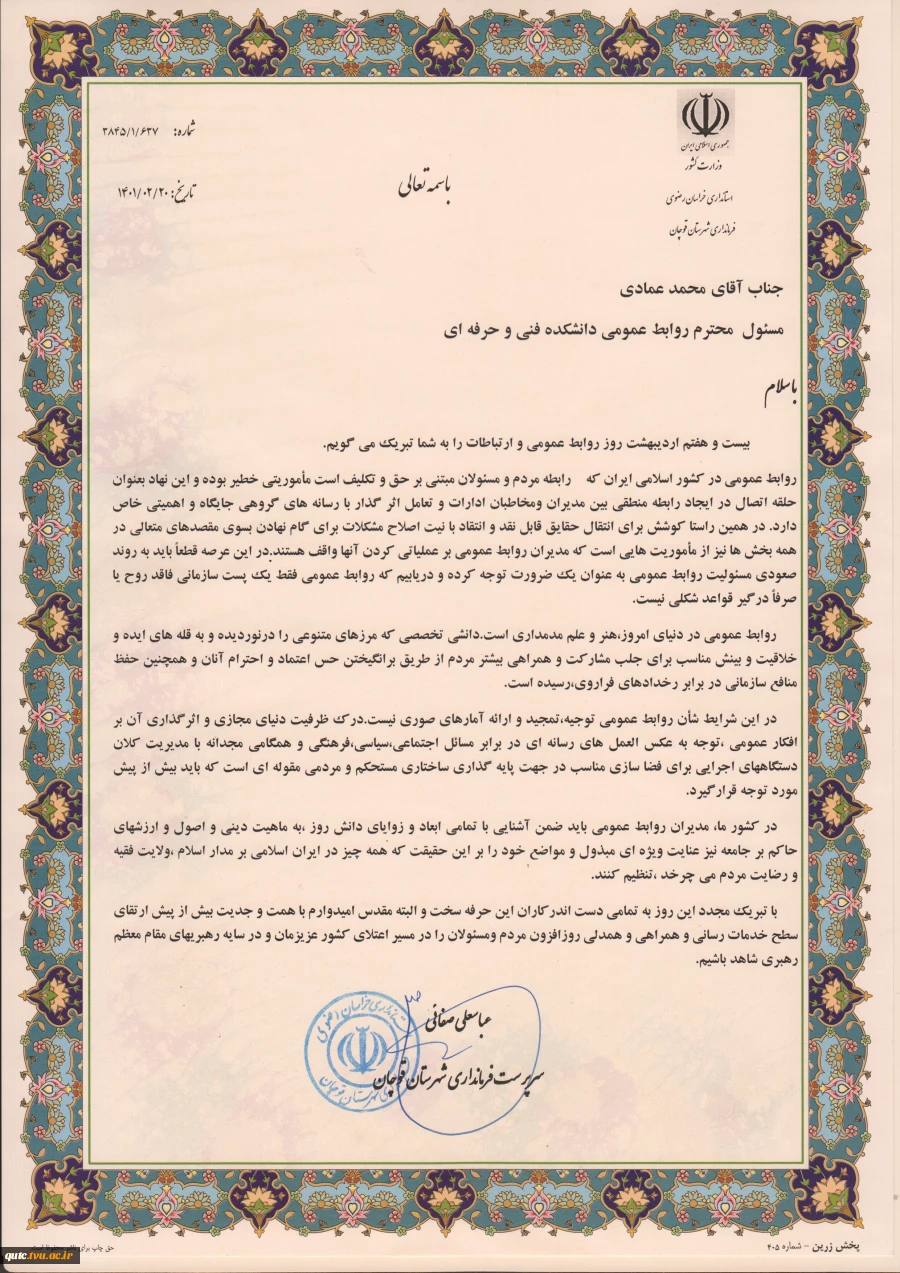 جمهوری اسلامی ایران
وزارت کشور
استانداری خراسان رضوی
فرمانداری شهرستان قوچان
شماره: ۳۸۴۵/۱/۶۳۷
تاریخ: ۱۴۰۱/۰۲/۲۰
باسمه تعالی
جناب آقای محمد عمادی
مسئول محترم روابط عمومی دانشکده فنی و حرفه ای
باسلام
بیست و هفتم اردیبهشت روز روابط عمومی و ارتباطات را به شما تبریک می گویم.
روابط عمومی در کشور اسلامی ایران که رابطه مردم و مسئولان مبتنی بر حق و تکلیف است مأموریتی خطیر بوده و این نهاد بعنوان
حلقه اتصال در ایجاد رابطه منطقی بین مدیران ومخاطبان ادارات و تعامل اثر گذار با رسانه های گروهی جایگاه و اهمیتی خاص
دارد. در همین راستا کوشش برای انتقال حقایق قابل نقد و انتقاد با نیت اصلاح مشکلات برای گام نهادن بسوی مقصدهای متعالی در
همه بخش ها نیز از مأموریت هایی است که مدیران روابط عمومی بر عملیاتی کردن آنها واقف هستند.در این عرصه قطعاً باید به روند
صعودی مسئولیت روابط عمومی به عنوان یک ضرورت توجه کرده و دریابیم که روابط عمومی فقط یک پست سازمانی فاقد روح یا
صرفاً درگیر قواعد شکلی نیست.
روابط عمومی در دنیای امروز،هنر و علم مدمداری است.دانشی تخصصی که مرزهای متنوعی را درنوردیده و به قله های ایده و
خلاقیت و بینش مناسب برای جلب مشارکت و همراهی بیشتر مردم از طریق برانگیختن حس اعتماد و احترام آنان و همچنین حفظ
منافع سازمانی در برابر رخدادهای فراروی،رسیده است.
در این شرایط شأن روابط عمومی توجیه،تمجید و ارائه آمارهای صوری نیست.درک ظرفیت دنیای مجازی و اثرگذاری آن بر
افکار عمومی ،توجه به عکس العمل های رسانه ای در برابر مسائل اجتماعی،سیاسی،فرهنگی و همگامی مجدانه با مدیریت کلان
دستگاههای اجرایی برای فضا سازی مناسب در جهت پایه گذاری ساختاری مستحکم و مردمی مقوله ای است که باید بیش از پیش
مورد توجه قرارگیرد.
در کشور ما، مدیران روابط عمومی باید ضمن آشنایی با تمامی ابعاد و زوایای دانش روز ،به ماهیت دینی و اصول و ارزشهای
حاکم بر جامعه نیز عنایت ویژه ای مبذول و مواضع خود را بر این حقیقت که همه چیز در ایران اسلامی بر مدار اسلام ،ولایت فقیه
و رضایت مردم می چرخد ،تنظیم کنند.
با تبریک مجدد این روز به تمامی دست اندرکاران این حرفه سخت و البته مقدس امیدوارم با همت و جدیت بیش از پیش ارتقای
سطح خدمات رسانی و همراهی و همدلی روزافزون مردم ومسئولان را در مسیر اعتلای کشور عزیزمان و در سایه رهبریهای مقام معظم
رهبری شاهد باشیم.
عباسعلی صفائی
سرپرست فرمانداری شهرستان قوچان
استانداری خراسان رضوی
شهرستان قوچان
پخش زرین - شماره ۴۰۵
حق چاپ برای
qutc.tvu.ac.ir